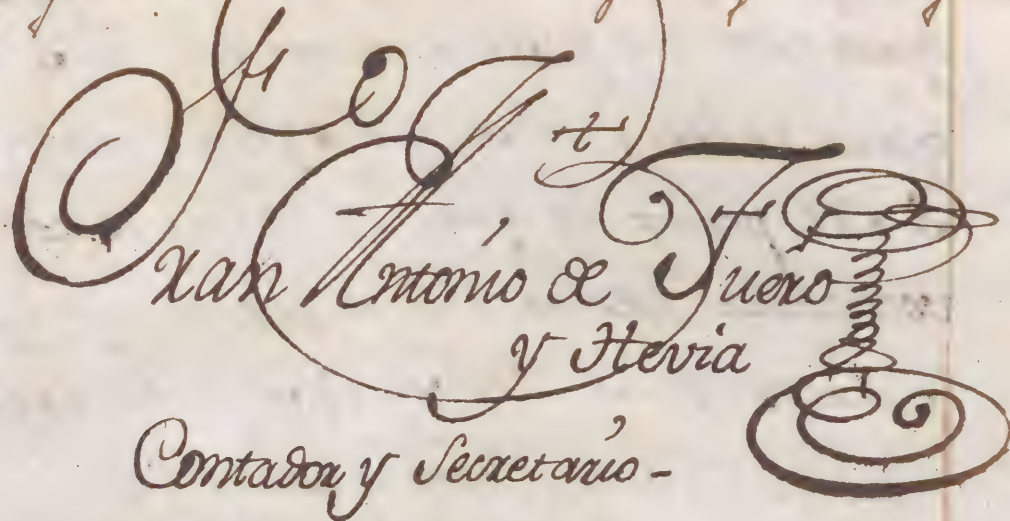 Fran Antonio de Fuero
y Hevia
Contador y Secretario-